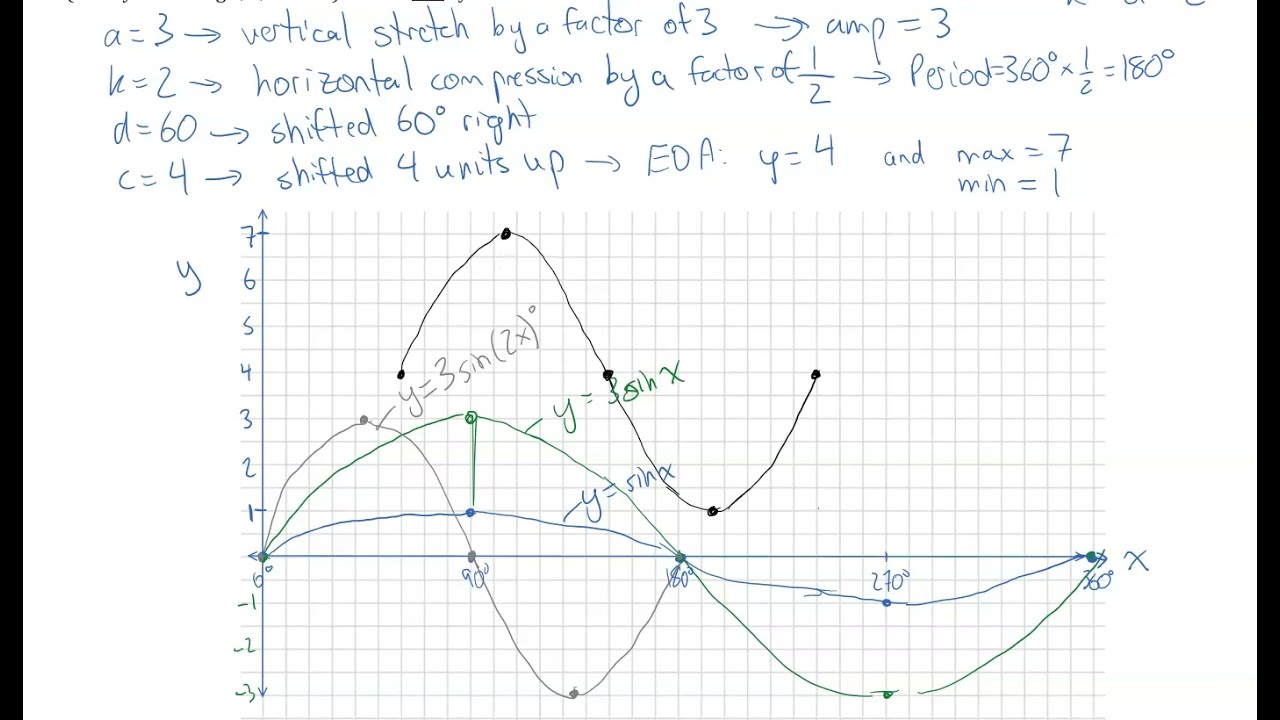 a = 3 → vertical stretch by a factor of 3 → amp = 3
k = 2 → horizontal compression by a factor of 1/2 → Period = 360° × 1/2 = 180°
d = 60 → shifted 60° right
c = 4 → shifted 4 units up → EOA: y = 4 and max = 7
min = 1
7
y
6
5
y = 3 sin(2x)°
4
y = 3 sin x
3
2
y = sin x
1
x
0° 90° 180° 270° 360°
-1
-2
-3